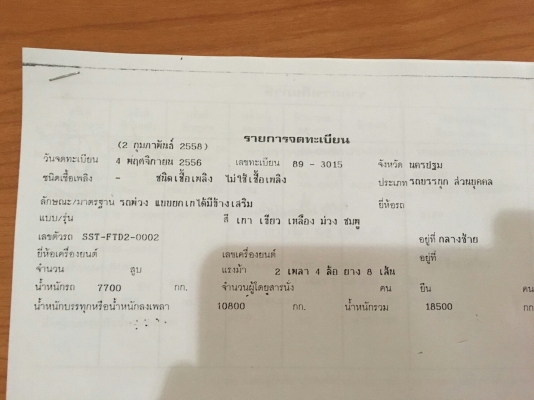 รายการจดทะเบียน
(2 กุมภาพันธ์ 2558)
วันจดทะเบียน 4 พฤศจิกายน 2556 เลขทะเบียน 89 - 3015 จังหวัด นครปฐม
ชนิดเชื้อเพลิง - ชนิดเชื้อเพลิง ไม่ใช้เชื้อเพลิง ประเภท รถบรรทุก ส่วนบุคคล
ลักษณะ/มาตรฐาน รถพ่วง แบบยกเทได้มีข้างเสริม ยี่ห้อรถ
แบบ/รุ่น สี เทา เขียว เหลือง ม่วง ชมพู
เลขตัวรถ SST-FTD2-0002 อยู่ที่ กลางซ้าย
ยี่ห้อเครื่องยนต์ เลขเครื่องยนต์ อยู่ที่
จำนวน สูบ แรงม้า 2 เพลา 4 ล้อ ยาง 8 เส้น
น้ำหนักรถ 7700 กก. จำนวนผู้โดยสารนั่ง คน ยืน คน
น้ำหนักบรรทุกหรือน้ำหนักลงเพลา 10800 กก. น้ำหนักรวม 18500 กก